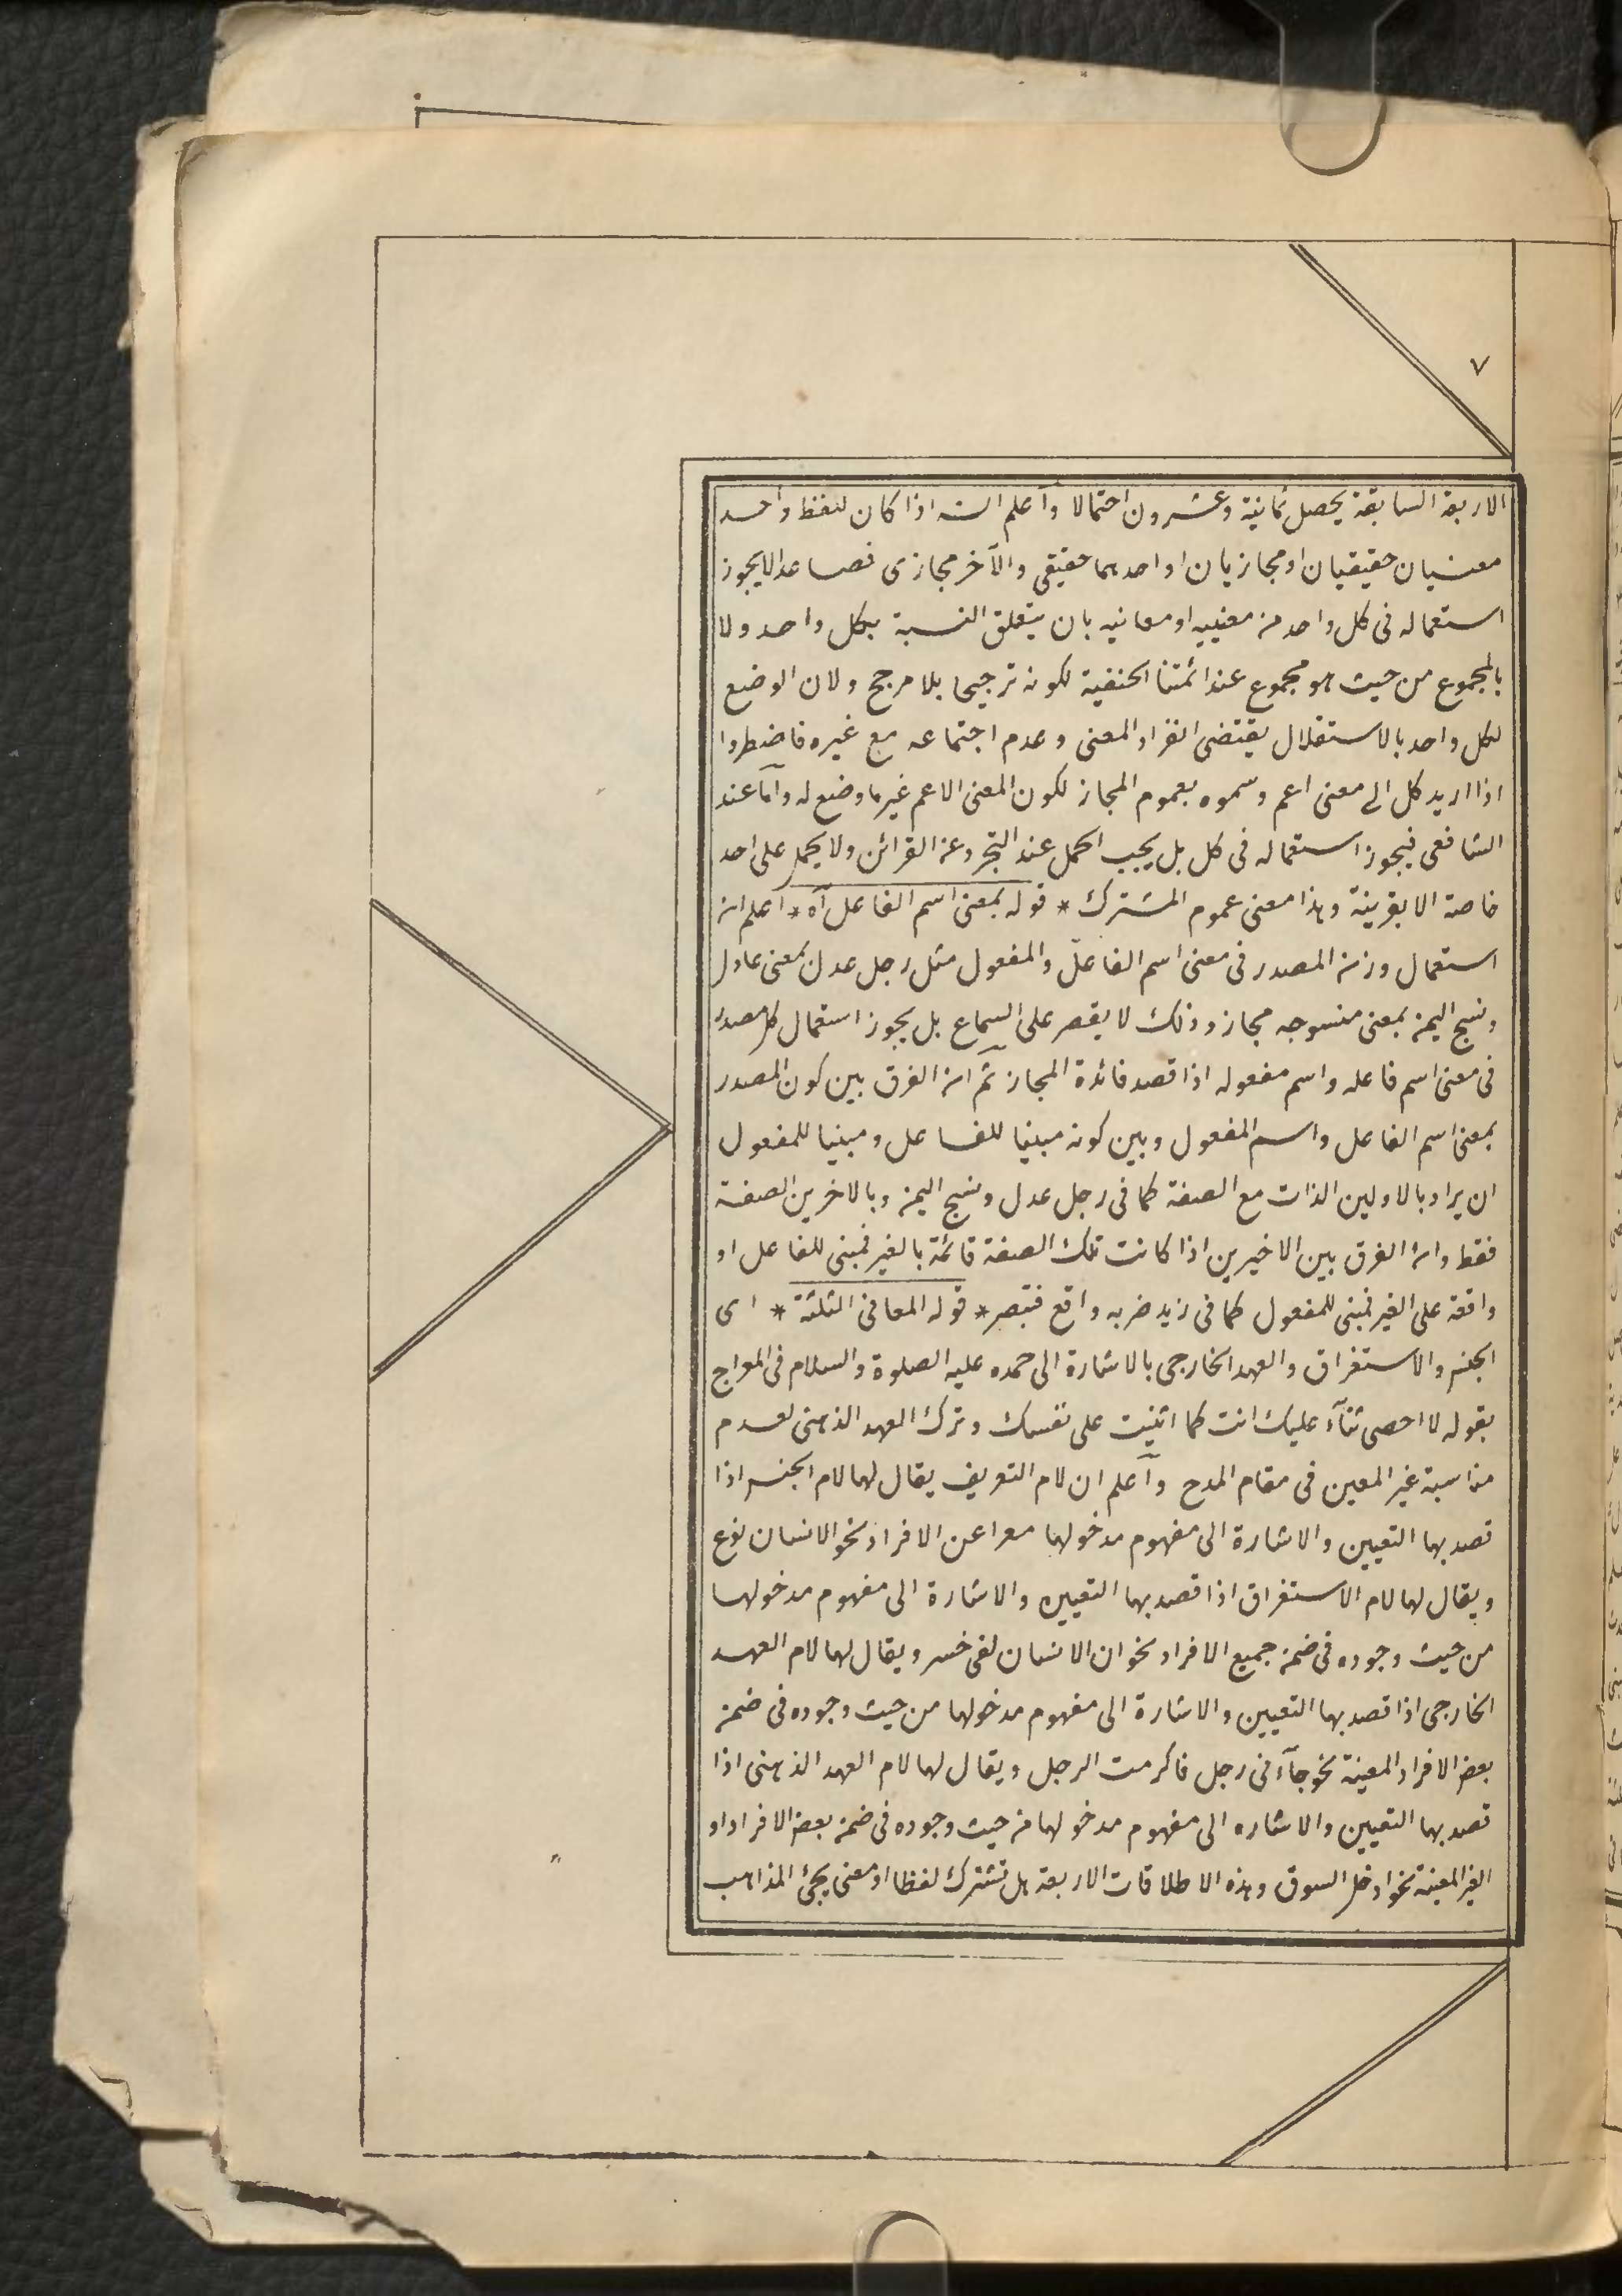 ٧
الاربعة السابقة يحصل ثمانية وعشرون احتمالا وآعلم انه اذا كان للفظ واحد
معنيان حقيقيان او مجازيان او احدهما حقيقي والآخر مجازى فصاعدا لا يجوز
استعماله فى كل واحد من معنييه او معانيه بان يتعلق النسبة بكل واحد ولا
بالمجموع من حيث هو مجموع عند ائمتنا الحنفية لكونه ترجيحا بلا مرجح ولان الوضع
لكل واحد بالاستقلال يقتضى انفراد المعنى وعدم اجتماعه مع غيره فاضطروا
اذا اريد كل الى معنى اعم وسموه بعموم المجاز لكون المعنى الاعم غير ما وضع له وآما عند
الشافعى فيجوز استعماله فى كل بل يجب الحمل عند التجرد عن القرائن ولا يحمل على احد
خاصة الا بقرينة وهذا معنى عموم المشترك * قوله بمعنى اسم الفاعل آه * اعلم ان
استعمال وزن المصدر فى معنى اسم الفاعل والمفعول مثل رجل عدل بمعنى عادل
ونسج اليمن بمعنى منسوجه مجاز وذلك لا يقصر على السماع بل يجوز استعمال كل مصدر
فى معنى اسم فاعله واسم مفعوله اذا قصد فائدة المجاز ثم ان الفرق بين كون المصدر
بمعنى اسم الفاعل واسم المفعول وبين كونه مبنيا للفاعل ومبنيا للمفعول
ان يراد بالاولين الذات مع الصفة كما فى رجل عدل ونسج اليمن وبالاخرين الصفة
فقط وان الفرق بين الاخيرين اذا كانت تلك الصفة قائمة بالغير فمبنى للفاعل او
واقعة على الغير فمبنى للمفعول كما فى زيد ضربه واقع فتبصر * قوله المعانى الثلثة * اى
الجنس والاستغراق والعهد الخارجى بالاشارة الى حمده عليه الصلوة والسلام فى المعراج
بقوله لا احصى ثنآء عليك انت كما اثنيت على نفسك وترك العهد الذهنى لعدم
مناسبة غير المعين فى مقام المدح وآعلم ان لام التعريف يقال لها لام الجنس اذا
قصد بها التعيين والاشارة الى مفهوم مدخولها معرا عن الافراد نحو الانسان نوع
ويقال لها لام الاستغراق اذا قصد بها التعيين والاشارة الى مفهوم مدخولها
من حيث وجوده فى ضمن جميع الافراد نحو ان الانسان لفى خسر ويقال لها لام العهد
الخارجى اذا قصد بها التعيين والاشارة الى مفهوم مدخولها من حيث وجوده فى ضمن
بعض الافراد المعينة نحو جآءنى رجل فاكرمت الرجل ويقال لها لام العهد الذهنى اذا
قصد بها التعيين والاشاره الى مفهوم مدخولها من حيث وجوده فى ضمن بعض الافراد او
الغير المعينة نحو ادخل السوق وهذه الاطلاقات الاربعة هل تشترك لفظا او معنى يجئ المذاهب